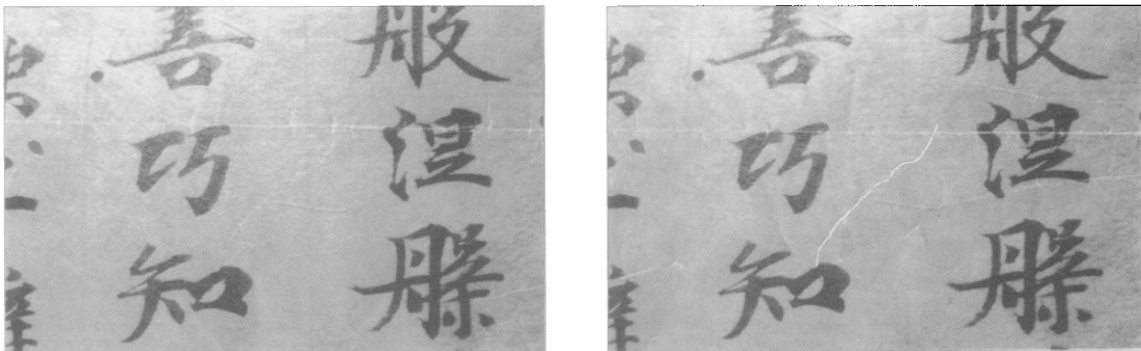 般涅槃
善巧知
般涅槃
善巧知